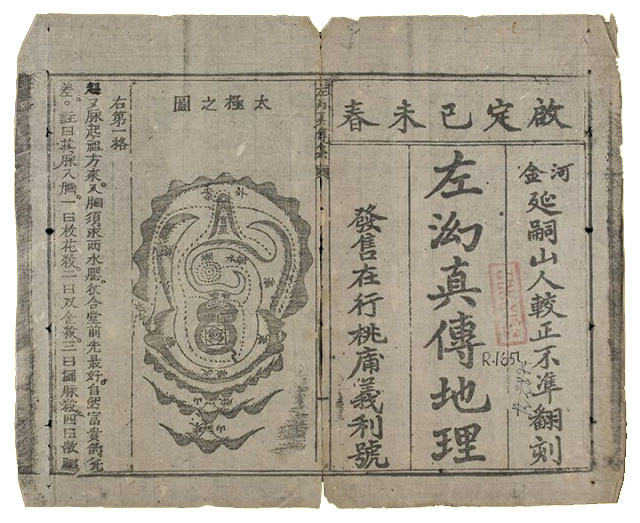 啟定己未春
河金延嗣山人較正不準翻刻
左泑真傳地理
發售在行桃庯義利號
R.1654
太極之圖
右第一格
又脉起祖方來入胸須求兩水腮合堂前先最好。自然富貴
差。註曰其脉入胸。一曰枚花殺。二曰双金殺。三曰脉殺。四曰散